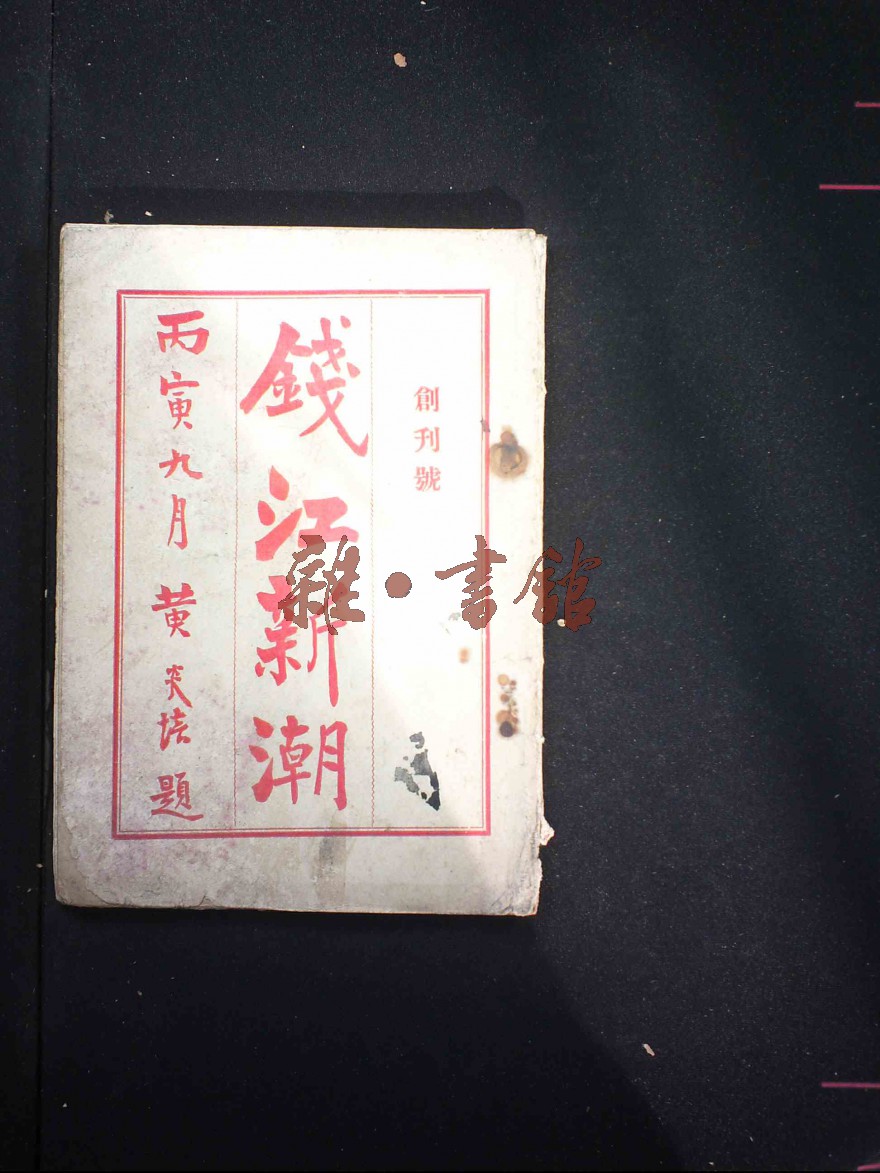 創刊號
錢江新潮
丙寅九月 黃炎培題
雜·書館